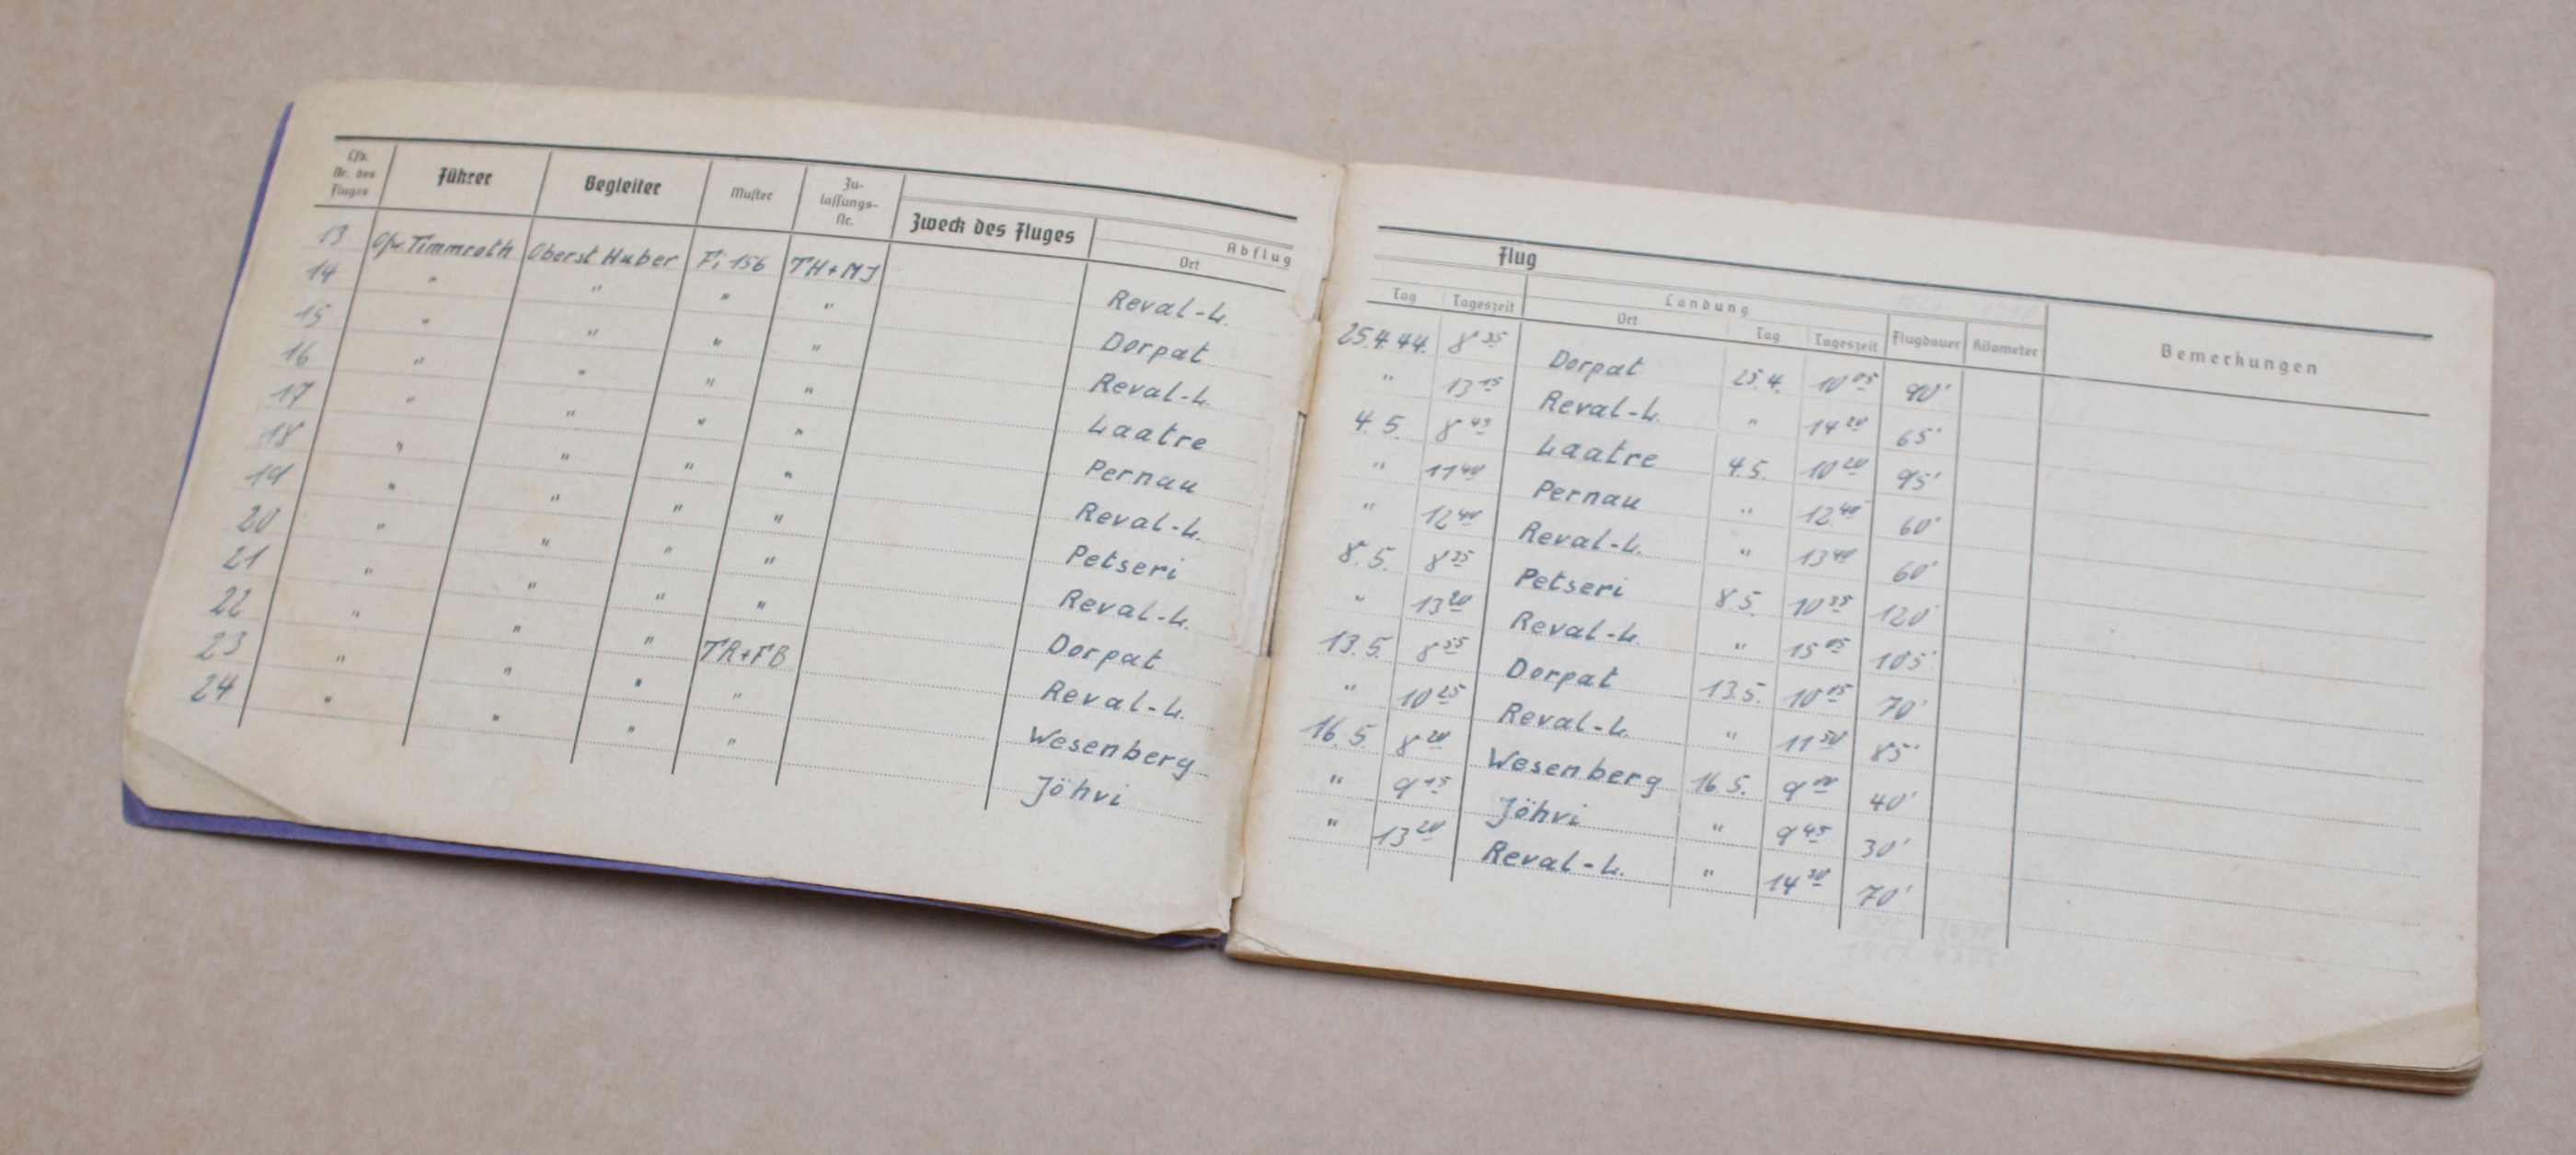 Lfd. Nr. des Fluges Führer Begleiter Muster Zu-lassungs-Nr. Zweck des Fluges Abflug Ort
13 Ofw. Timmroth Oberst Huber Fi 156 TH+MJ Reval-L.
14 " " " " Dorpat
15 " " " " Reval-L.
16 " " " " Laatre
17 " " " " Pernau
18 " " " " Reval-L.
19 " " " " Petseri
20 " " " " Reval-L.
21 " " " " Dorpat
22 " " " TR+FB Reval-L.
23 " " " " Wesenberg
24 " " " " Jöhvi
Flug
Tag Tageszeit Landung Ort Tag Tageszeit Flugdauer Kilometer Bemerkungen
25.4.44. 8 35 Dorpat 25.4. 10 05 90'
" 13 15 Reval-L. " 14 20 65'
4.5. 8 45 Laatre 4.5. 10 20 95'
" 11 40 Pernau " 12 40 60'
" 12 40 Reval-L. " 13 40 60'
8.5. 8 35 Petseri 8.5. 10 35 120'
" 13 20 Reval-L. " 15 05 105'
13.5. 8 55 Dorpat 13.5. 10 05 70'
" 10 25 Reval-L. " 11 50 85'
16.5. 8 20 Wesenberg 16.5. 9 00 40'
" 9 15 Jöhvi " 9 45 30'
" 13 20 Reval-L. " 14 30 70'